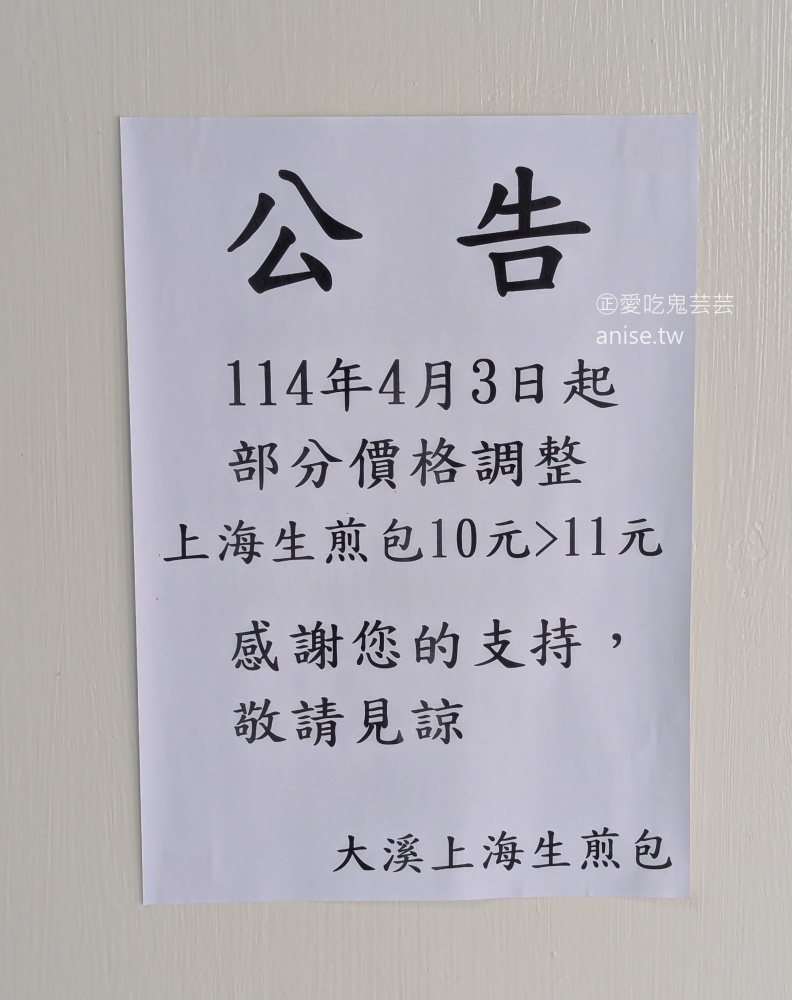 公告
㊣愛吃鬼芸芸
anise.tw
114年4月3日起
部分價格調整
上海生煎包10元>11元
感謝您的支持，
敬請見諒
大溪上海生煎包